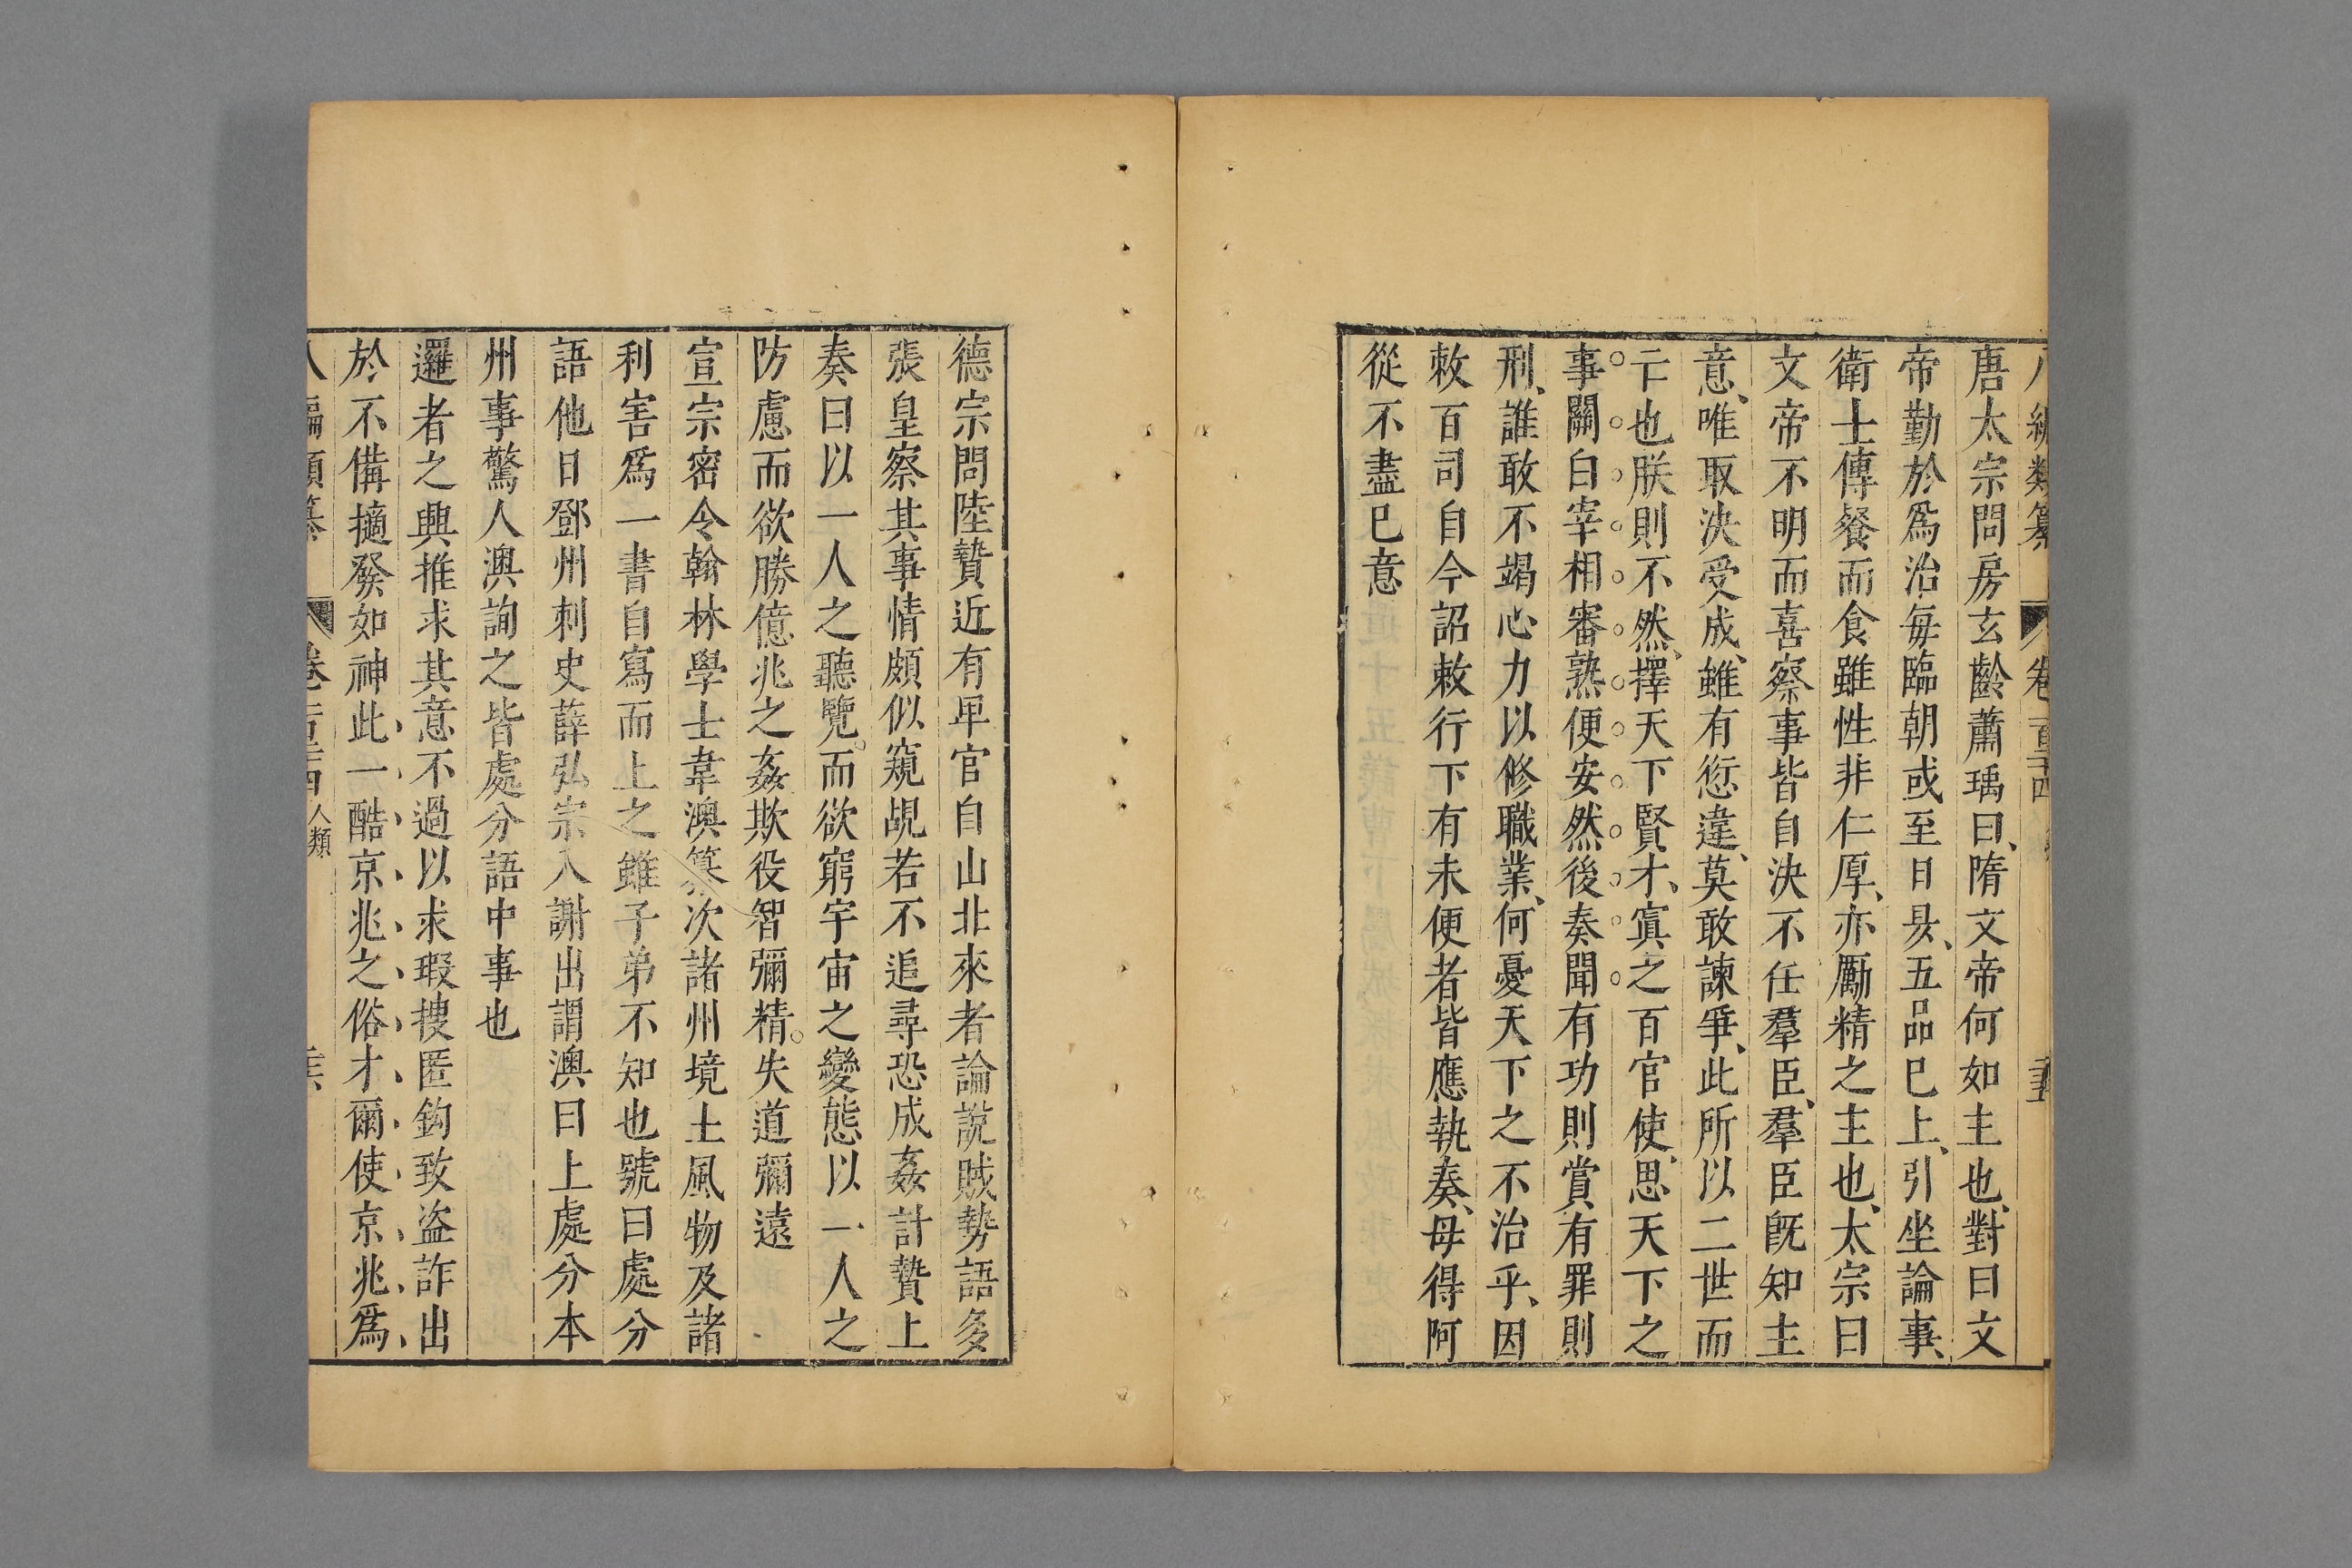 八編類纂 卷一百二十四
唐太宗問房玄齡蕭瑀曰、隋文帝何如主也、對曰文
帝勤於爲治、每臨朝或至日昃、五品巳上、引坐論事、
衛士傳餐而食雖性非仁厚、亦勵精之主也、太宗曰
文帝不明而喜察事皆自決不任羣臣、羣臣旣知主
意、唯取決受成、雖有愆違、莫敢諫爭、此所以二世而
亡也朕則不然、擇天下賢才、寘之百官使、思天下之
事關白宰相審熟便安然後奏聞有功則賞有罪則
刑、誰敢不竭心力以修職業、何憂天下之不治乎、因
敕百司自今詔敕行下有未便者皆應執奏、毋得阿
從不盡巳意
德宗問陸贄近有卑官自山北來者論說賊勢語多
張皇察其事情頗似窺覘若不追尋恐成姦計贄上
奏曰以一人之聽覽。而欲窮宇宙之變態以一人之
防慮而欲勝億兆之姦欺役智彌精。失道彌遠
宣宗密令翰林學士韋澳纂次諸州境土風物及諸
利害爲一書自寫而上之雖子弟不知也號曰處分
語他日鄧州刺史薛弘宗入謝出謂澳曰上處分本
州事驚人澳詢之皆處分語中事也
邏者之興推求其意不過以求瑕摟匿鈎致盜詐出
於不備擿發如神此一酷京兆之俗才爾使京兆爲
八編類纂 卷一百二十四 人類